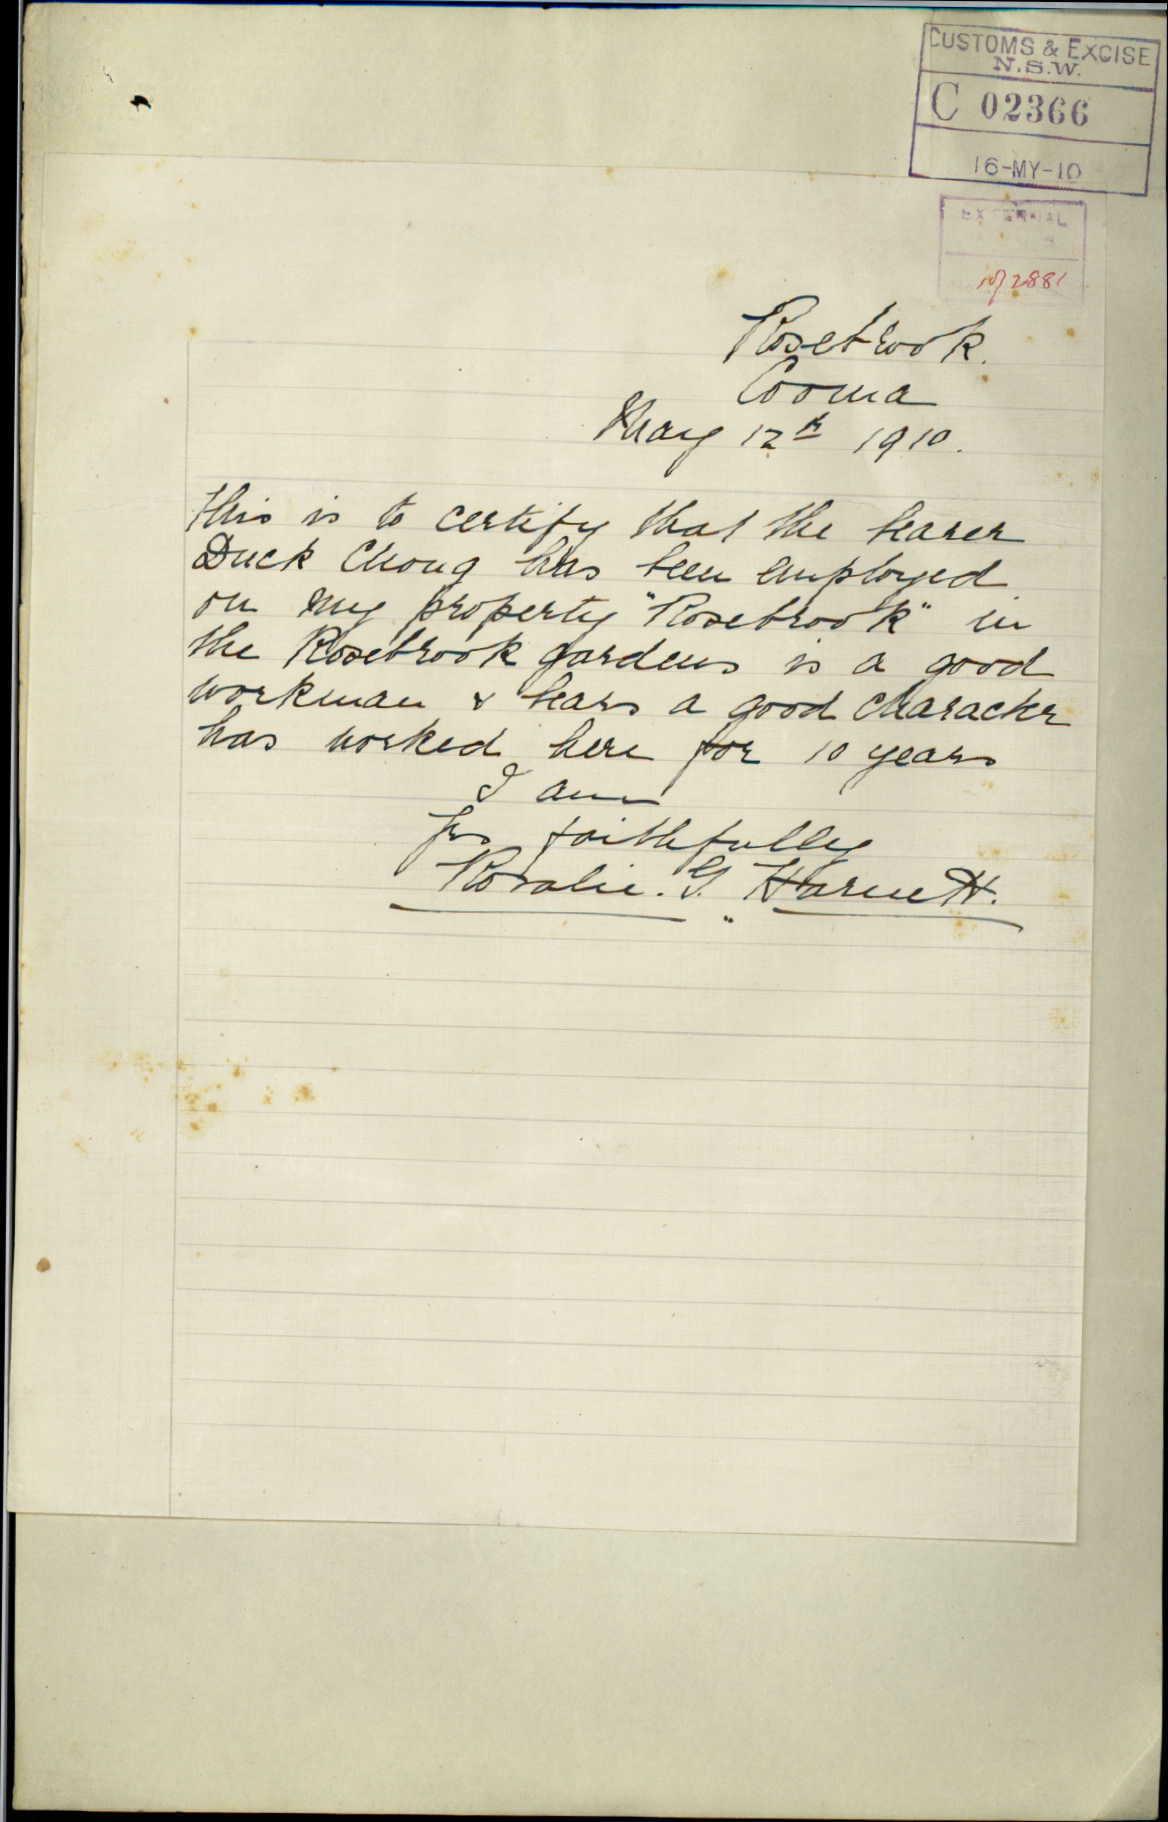 CUSTOMS & EXCISE
N.S.W.
C 02366
16-MY-10
EXTERNAL
10/2881
Rosebrook.
Cooma
May 12th 1910.
This is to certify that the bearer
Duck Chong has been employed
on my property "Rosebrook" in
the Rosebrook gardens is a good
workman & bears a good character
has worked here for 10 years
I am
Yrs faithfully
Rosalie. G. Harnett.